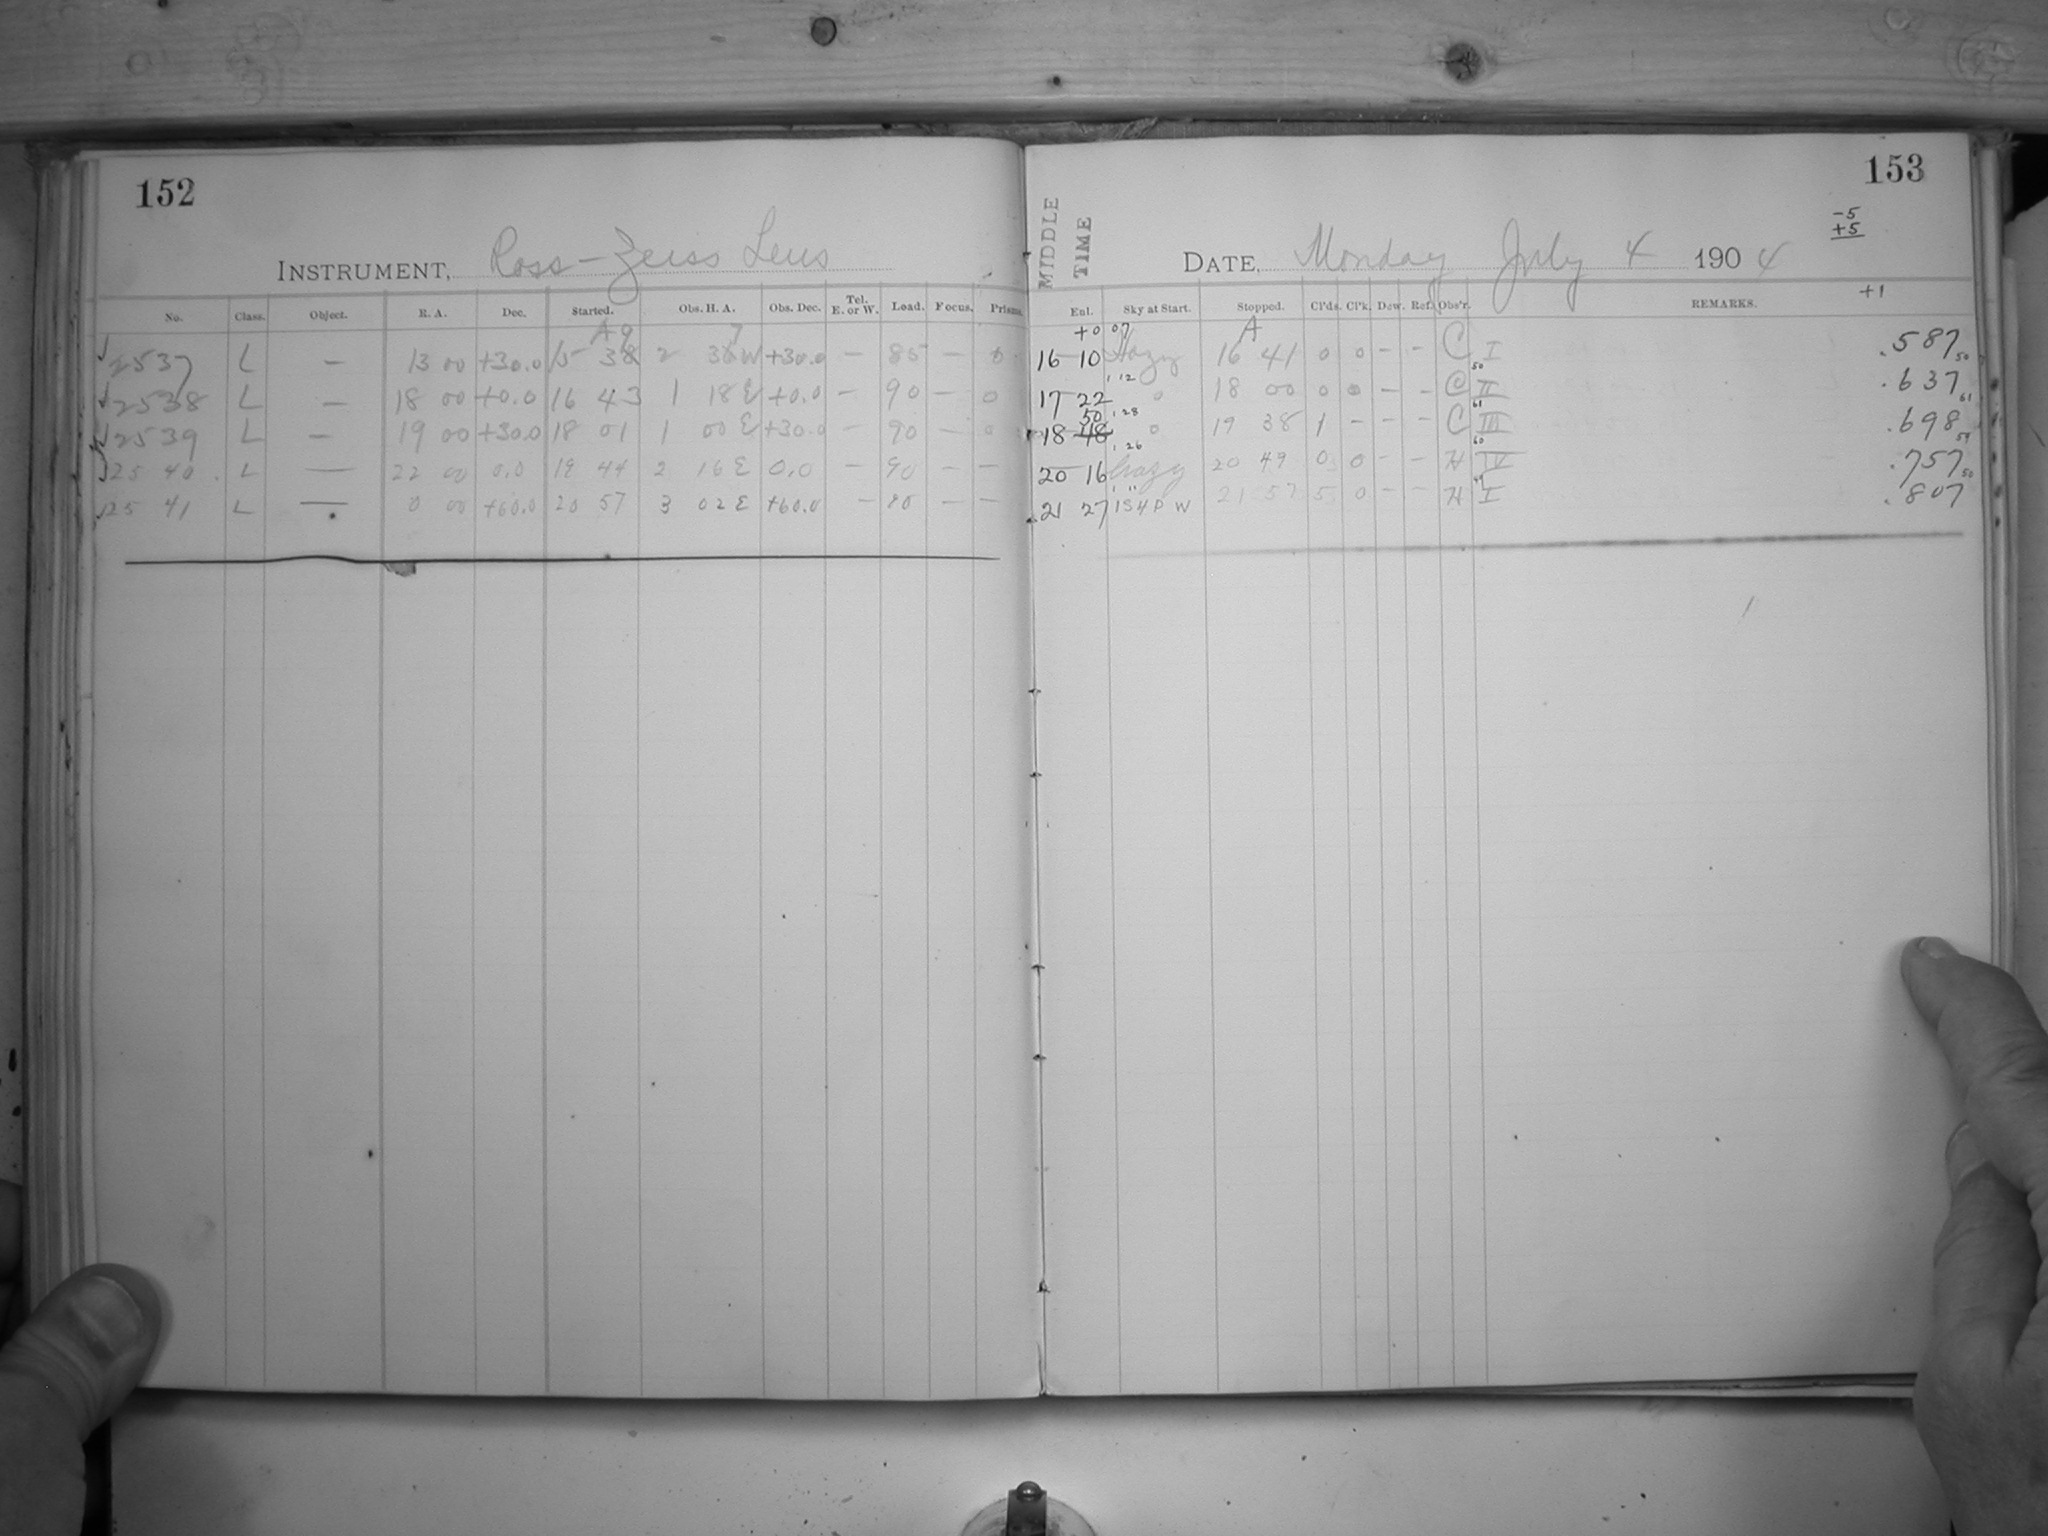 152
INSTRUMENT, Ross-Zeiss Lens
No. Class. Object. R. A. Dec. Started. Obs. H. A. Obs. Dec. Tel. E. or W. Load. Focus. Prisms.
2537 L — 13 00 +30.0 15 38 2 38 W +30.0 — 85 — 0
2538 L — 18 00 +0.0 16 43 1 18 E +0.0 — 90 — 0
2539 L — 19 00 +30.0 18 01 1 00 E +30.0 — 90 — 0
25 40 L — 22 00 0.0 19 44 2 16 E 0.0 — 90 — —
25 41 L — 0 00 +60.0 20 57 3 02 E +60.0 — 80 — —
153
-5
+5
MIDDLE TIME
DATE, Monday July 4 1904
+1
Enl. Sky at Start. Stopped. Cl'ds. Cl'k. Dew. Ref. Obs'r. REMARKS.
16 10 Hazy 16 41 0 0 - - C I .587
17 22 " 18 00 0 0 - - C II .637
50
18 48 " 19 38 1 - - - C III .698
20 16 Hazy 20 49 0 0 - - H IV .757
21 27 1S4P W 21 57 5 0 - - H I .807